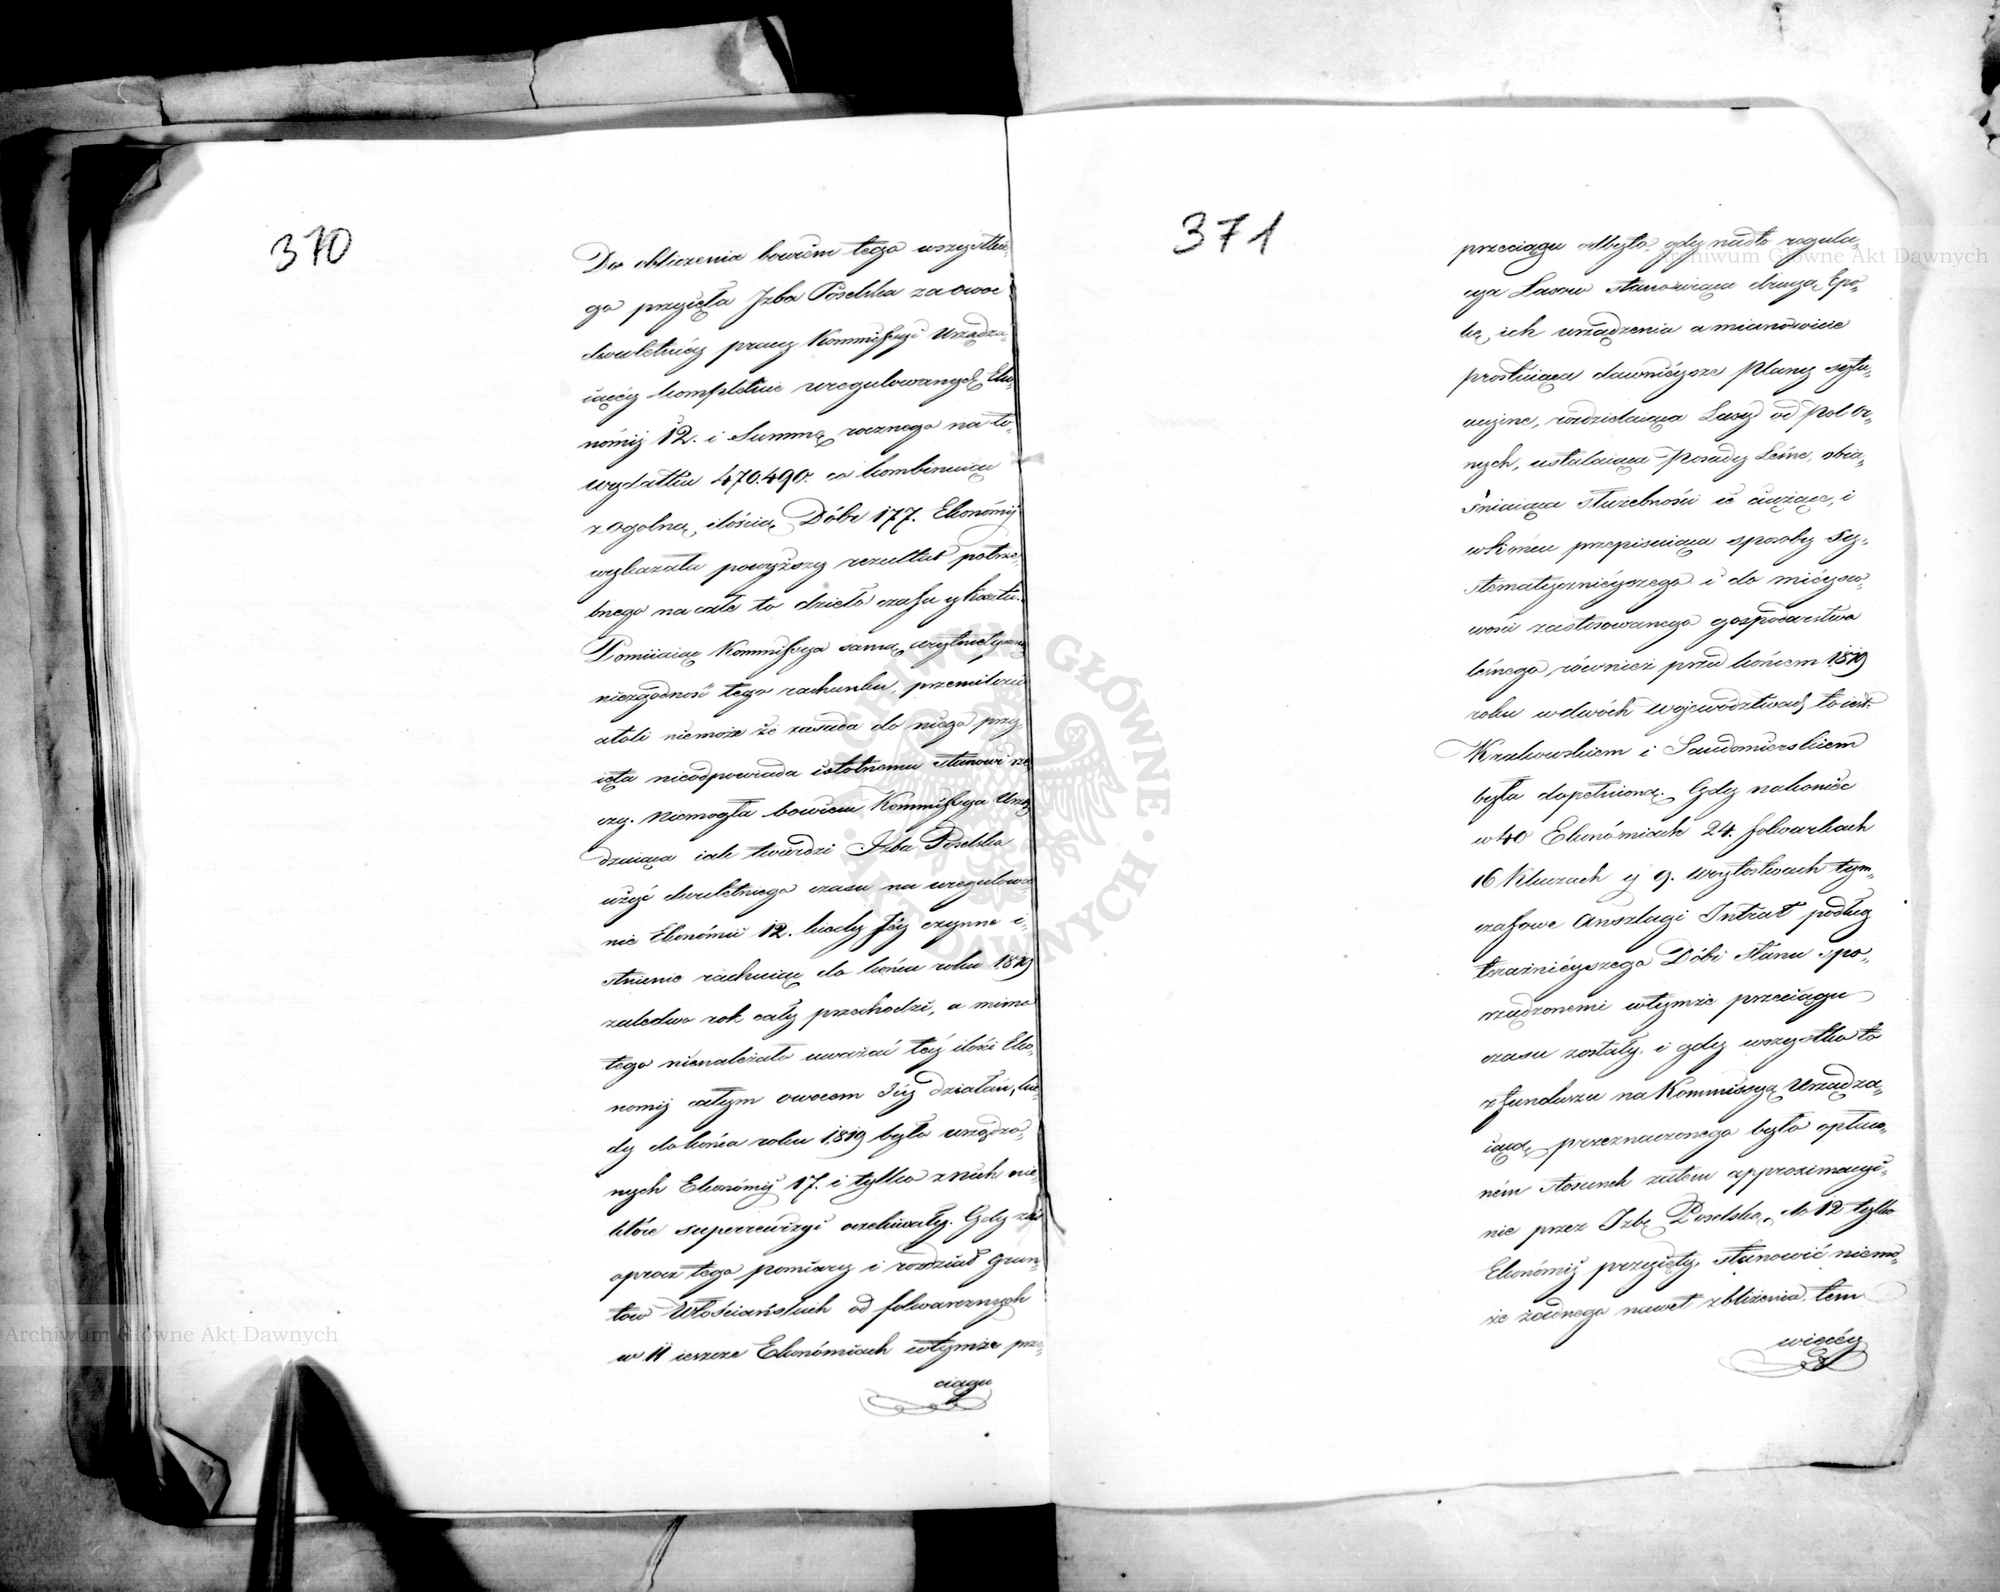 370
Do obliczenia bowiem tego wszystkie-
go przyięła Izba Poselska za owoc
dwuletniey pracy Kommissyi Urządza-
iącey kompletnie uregulowanych Eko-
nomij 12. i Summę rocznego na to
wydatku 470.490. co kombinuiąc
z ogolną ilością Dóbr 177. Ekonomij
wykazała powyższy rezultat potrze-
bnego na całe to dzieło czasu y kosztu.
Pomiiaiąc Kommissya samą arytmetyczną
niezgodność tego rachunku, przemilczeć
atoli niemoże że zasada do niego przy
ięta nieodpowiada istotnemu stanowi rze
czy. Niemogła bowiem Kommissya Urzą
dzaiąca iak twierdzi Izba Poselska
użyć dwuletniego czasu na uregulowa
nie Ekonomii 12. kiedy Jey czynne i-
stnienie rachuiąc do końca roku 1819
zaledwo rok cały przechodzi, a mimo
tego nienależało uważać tey ilości Eko-
nomij całym owocem Jey działań, kie-
dy do końca roku 1819 było urządzo-
nych Ekonomij 17. i tylko z nich nie-
które superrewizyi oczekiwały. Gdy zaś
oprocz tego pomiary i rozdział Grun-
tow Włościańskich od folwarcznych
w 11 ieszcze Ekonomiach wtymże prze-
ciagu
371
przeciągu odbyto. gdy nadto regula-
cya Lasow stanowiąca drugą Epo-
kę ich urządzenia a mianowicie
prostuiąca dawnieysze Plany sytu-
acyine, rozdzielaiąca Lasy od Pol or-
nych, ustalaiąca Posady Leśne, obia-
śniaiąca służebności ie ciążące, i
w końcu przepisuiąca sposoby Sy-
stematycznieyszego i do mieysco-
wości zastosowanego gospodarstwa
leśnego, również przed końcem 1819
roku w dwóch Województwach to iest.
Krakowskiem i Sandomierskiem
była dopełnioną. Gdy nakoniec
w 40 Ekonomiach 24. folwarkach
16 Kluczach y 9. Woytostwach tym-
czasowe Anszlagi Intrat podług
teraznieyszego Dóbr stanu spo-
rządzonemi wtymże przeciągu
czasu zostały, i gdy wszystko to
z funduszu na Kommissyą Urządza-
iącą przeznaczonego było opłaco-
ném stosunek zatem approximacyi-
nie przez Izbę Poselską do 12 tylko
Ekonomij przyięty, stanowić niemo-
że żadnego nawet zbliżenia. tem
więcéy
ARCHIWUM GŁÓWNE AKT DAWNYCH
Archiwum Główne Akt Dawnych
Archiwum Główne Akt Dawnych